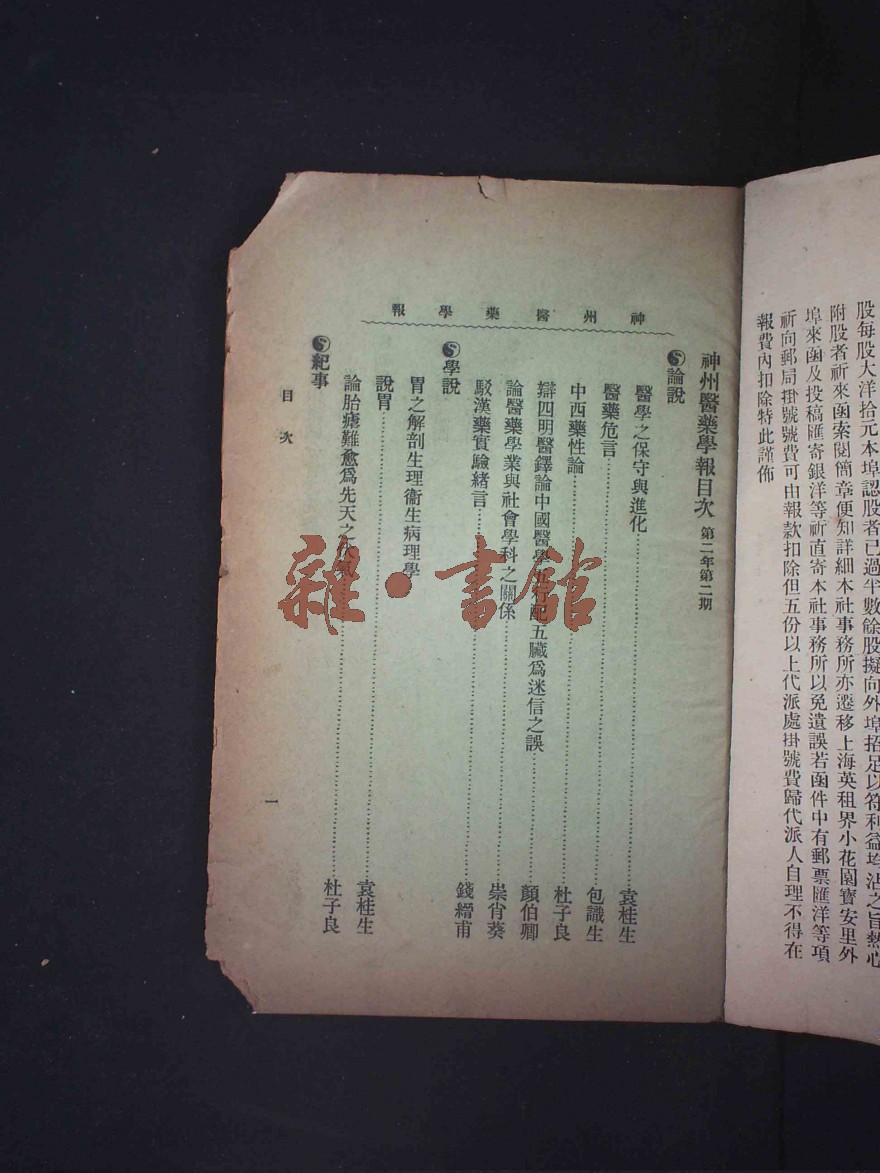 股每股大洋拾元本埠認股者已過半數餘股擬向外埠招足以符利益均沾之旨熱心
附股者祈來函索閱簡章便知詳細本社事務所亦遷移上海英租界小花園寶安里外
埠來函及投稿匯寄銀洋等祈直寄本社事務所以免遺誤若函件中有郵票匯洋等項
祈向郵局掛號號費可由報款扣除但五份以上代派處掛號費歸代派人自理不得在
報費內扣除特此謹佈
神州醫藥學報
神州醫藥學報目次 第二年第二期
論說
醫學之保守與進化……袁桂生
醫藥危言……包識生
中西藥性論……杜子良
辯四明醫鐸論中國醫學五行配五臟爲迷信之誤……顏伯卿
論醫藥學業與社會學科之關係……崇肖葵
駁漢藥實驗緒言……錢縉甫
學說
胃之解剖生理衞生病理學
說胃……袁桂生
論胎瘧難愈爲先天之……杜子良
紀事
目次
一
雜·書館